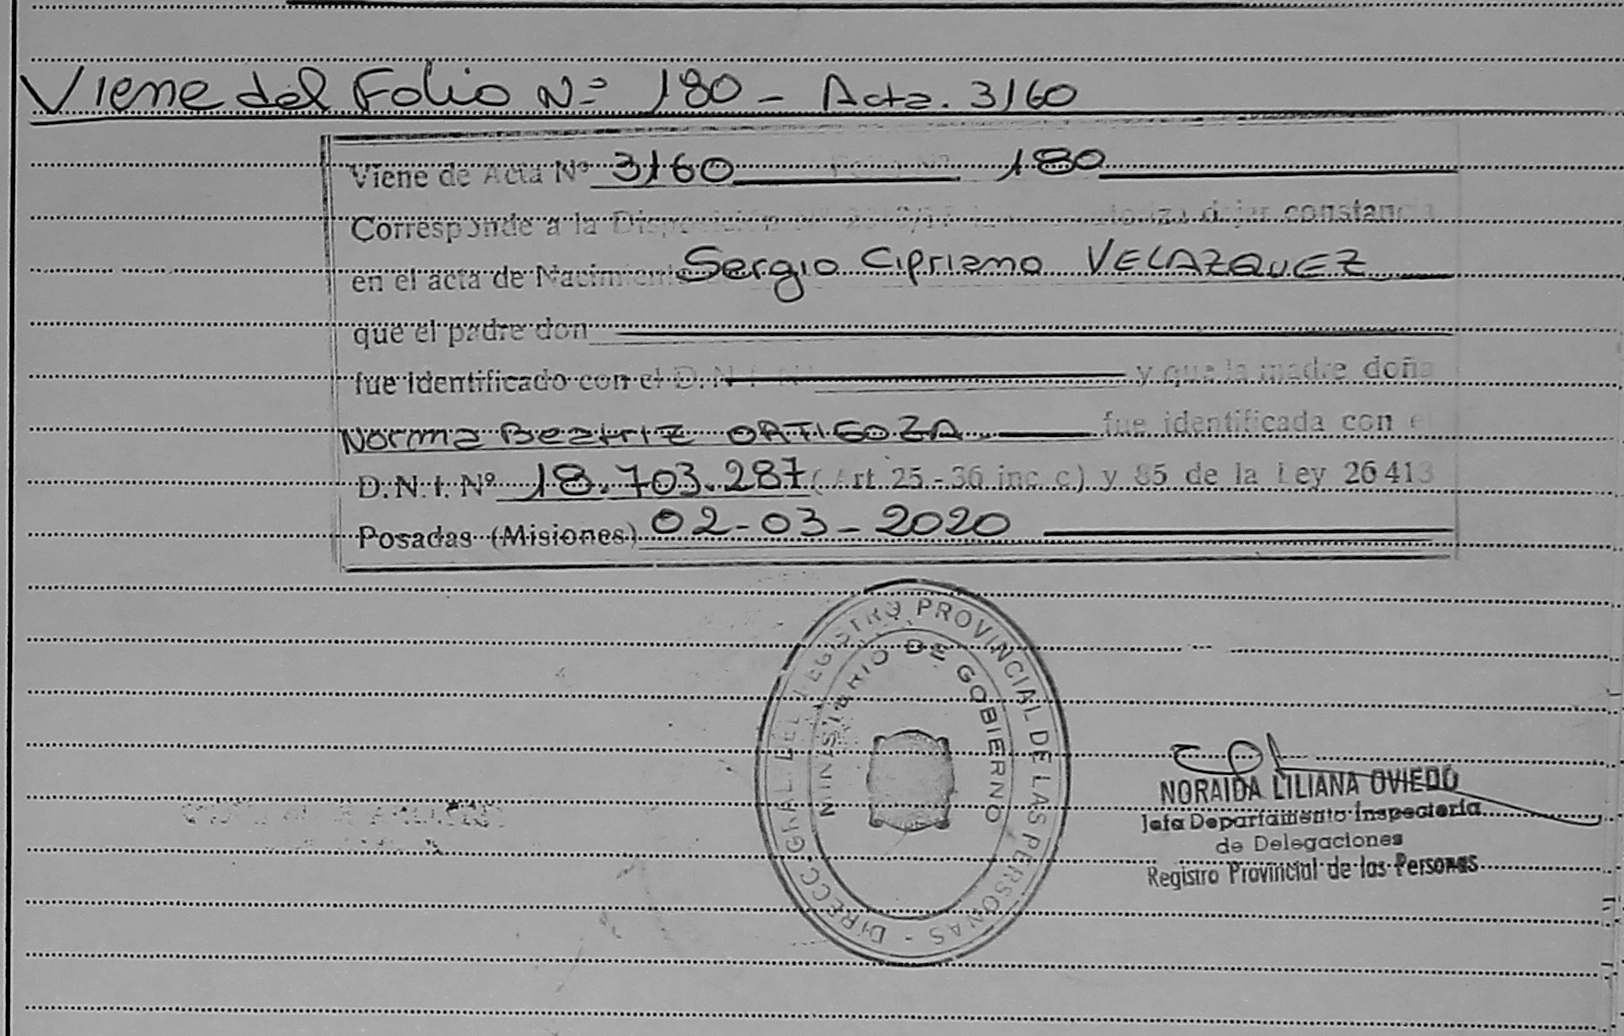 Viene del Folio Nº 180 - Acta. 3160
Viene de Acta Nº 3160 Folio Nº 180
Corresponde a la Disposición dejar constancia
en el acta de Nacimiento Sergio Cipriano VELAZQUEZ
que el padre don
fue identificado con el D.N.I. Nº y que la madre doña
Norma Beatriz ORTIGOZA fue identificada con el
D.N.I. Nº 18.703.287 (Art. 25 - 36 inc. c) y 85 de la Ley 26413
Posadas (Misiones) 02-03-2020
DIRECC. GRAL. DEL REGISTRO PROVINCIAL DE LAS PERSONAS -
MINISTERIO DE GOBIERNO
NORAIDA LILIANA OVIEDO
Jefa Departamento Inspectoría
de Delegaciones
Registro Provincial de las Personas